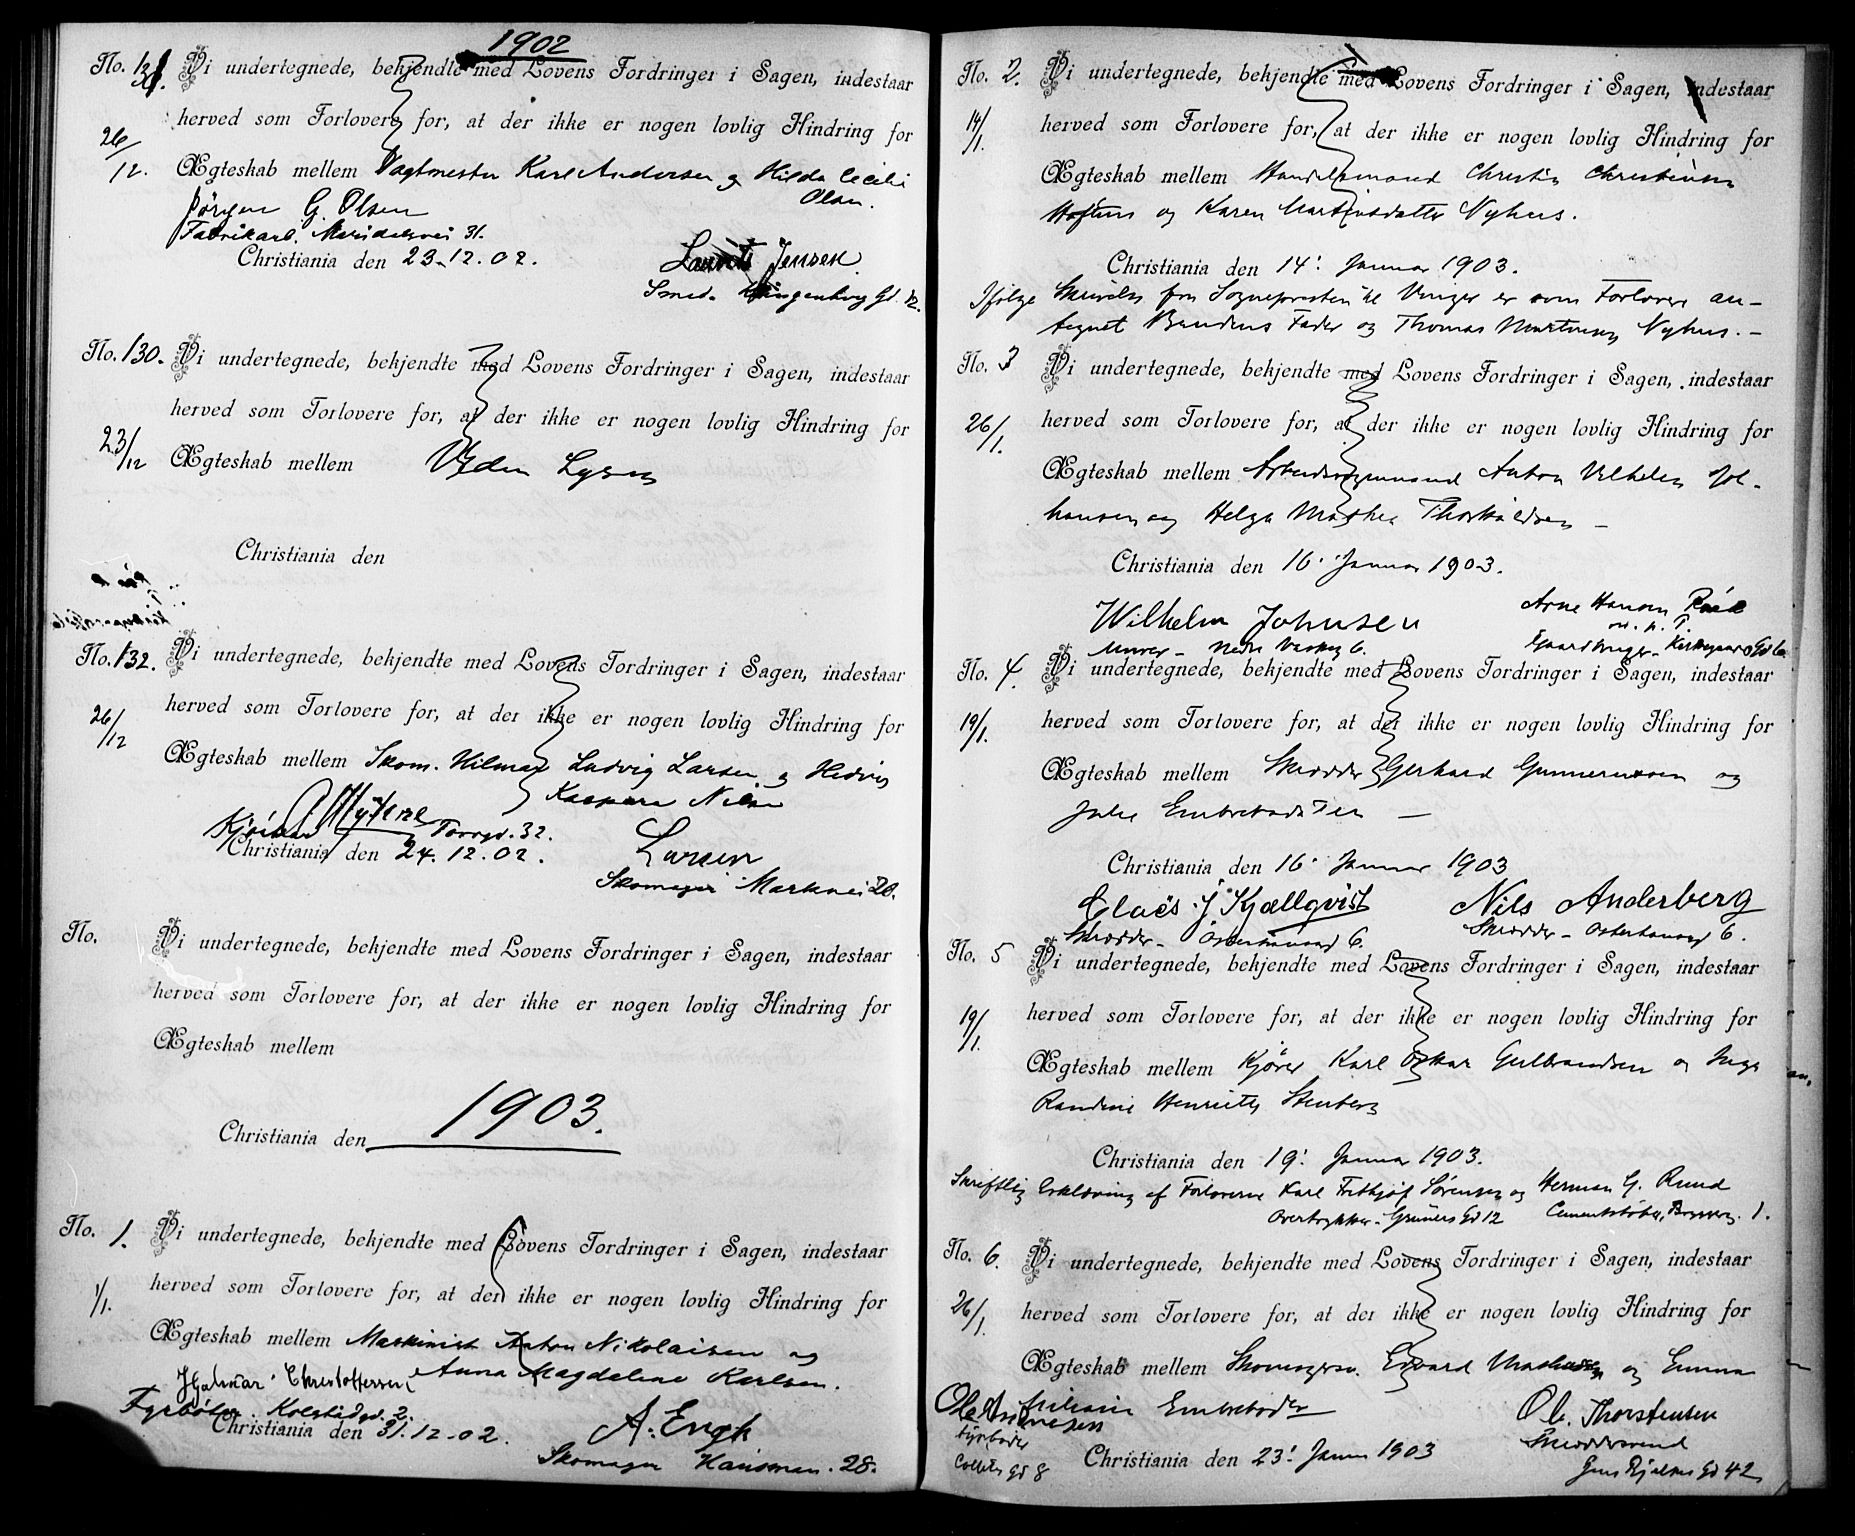 1902
No. 131. Vi undertegnede, bekjendte med Lovens Fordringer i Sagen, indestaar
herved som Forlovere for, at der ikke er nogen lovlig Hindring for
26/12. Ægteskab mellem Vagtmester Karl Andersen og Hilda Cecilie
Olsen.
Jørgen G. Olsen
Fabrikarb. Maridalsvei 31.
Christiania den 23.12.02.
Laurits Jensen
Smed. Klingenberg Gd. 12.
No. 130. Vi undertegnede, bekjendte med Lovens Fordringer i Sagen, indestaar
herved som Forlovere for, at der ikke er nogen lovlig Hindring for
23/12 Ægteskab mellem Uden Lysn
Christiania den
No. 132. Vi undertegnede, bekjendte med Lovens Fordringer i Sagen, indestaar
herved som Forlovere for, at der ikke er nogen lovlig Hindring for
26/12 Ægteskab mellem Skom. Hilmar Ludvig Larsen og Hedvig
Kaspara Nilsen
Torvgd. 32.
Christiania den 24.12.02.
Larsen
Skomager Markvei 20.
No. Vi undertegnede, bekjendte med Lovens Fordringer i Sagen, indestaar
herved som Forlovere for, at der ikke er nogen lovlig Hindring for
Ægteskab mellem
1903.
Christiania den
No. 1. Vi undertegnede, bekjendte med Lovens Fordringer i Sagen, indestaar
herved som Forlovere for, at der ikke er nogen lovlig Hindring for
1/1. Ægteskab mellem Maskinist Anton Nikolaisen og
Anna Magdeline Karlsen.
Hjalmar Christoffersen
Fyrbøter. Kolstadgd. 2.
Christiania den 31.12.02.
A. Engh
Skomager Hausman. 28.
No. 2. Vi undertegnede, bekjendte med Lovens Fordringer i Sagen, indestaar
14/1. herved som Forlovere for, at der ikke er nogen lovlig Hindring for
Ægteskab mellem Handelsmand Christian Christiansen
og Karen Martinsdatter Nyhus.
Christiania den 14. Januar 1903.
Ifølge Skrivelse fra Sognepresten til Vinger er som Forlovere an-
tegnet Brudens Fader og Thomas Martinsen Nyhus. -
No. 3 Vi undertegnede, bekjendte med Lovens Fordringer i Sagen, indestaar
26/1. herved som Forlovere for, at der ikke er nogen lovlig Hindring for
Ægteskab mellem Arbeidsformand Anton Vilhelm Jo-
hansen og Helga Mathea Thorvaldsen -
Christiania den 16. Januar 1903.
Wilhelm Johnsen
Murer - Nedre Vaskeg 6.
Arne Hansen
m. p. P.
Gaardbruger - Kirkegaards Gd 6a
No. 4. Vi undertegnede, bekjendte med Lovens Fordringer i Sagen, indestaar
19/1. herved som Forlovere for, at der ikke er nogen lovlig Hindring for
Ægteskab mellem Skrædder Gerhard Gunnerussen og
Julie Embretsdatter -
Christiania den 16. Januar 1903
Claës J. Kjællqvist
Skrædder - Osterhausgd 6.
Nils Anderberg
Skrædder - Osterhausgd 6.
No. 5 Vi undertegnede, bekjendte med Lovens Fordringer i Sagen, indestaar
19/1. herved som Forlovere for, at der ikke er nogen lovlig Hindring for
Ægteskab mellem Kjører Karl Oskar Gulbrandsen og Inga
Randine Henriette Stenberg
Christiania den 19. Januar 1903.
Skriftlig Erklæring af Forloverne Karl Frithjof Sørensen og Herman G. Rund
- Grüners Gd 12 Cementstøber, 1.
No. 6. Vi undertegnede, bekjendte med Lovens Fordringer i Sagen, indestaar
26/1. herved som Forlovere for, at der ikke er nogen lovlig Hindring for
Ægteskab mellem Skomagersv. Edvard Mathisen og Emma
Embretsdatter
Ole
Fyrbøder
Collets Gd 8
Christiania den 23. Januar 1903
Ole. Thorstensen
Skræddersvend
42